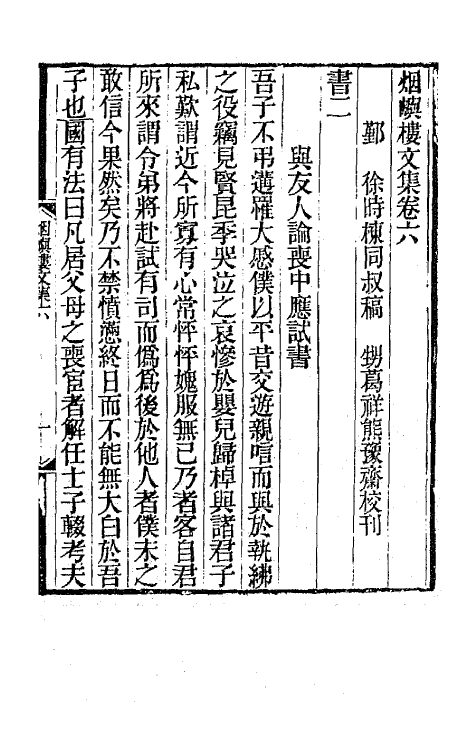 烟嶼樓文集卷六
鄞　徐時棟同叔稿　甥葛祥熊豫齋校刊
書二
與友人論喪中應試書
吾子不弔遘罹大慼僕以平昔交遊親唁而與於執紼
之役竊見賢昆季哭泣之哀慘於嬰兒歸棹與諸君子
私歎謂近今所寡有心常怦怦媿服無已乃者客自君
所來謂令弟將赴試有司而僞爲後於他人者僕未之
敢信今果然矣乃不禁憤懣終日而不能無大白於吾
子也國有法曰凡居父母之喪宦者解任士子輟考夫
烟嶼樓文集六
一